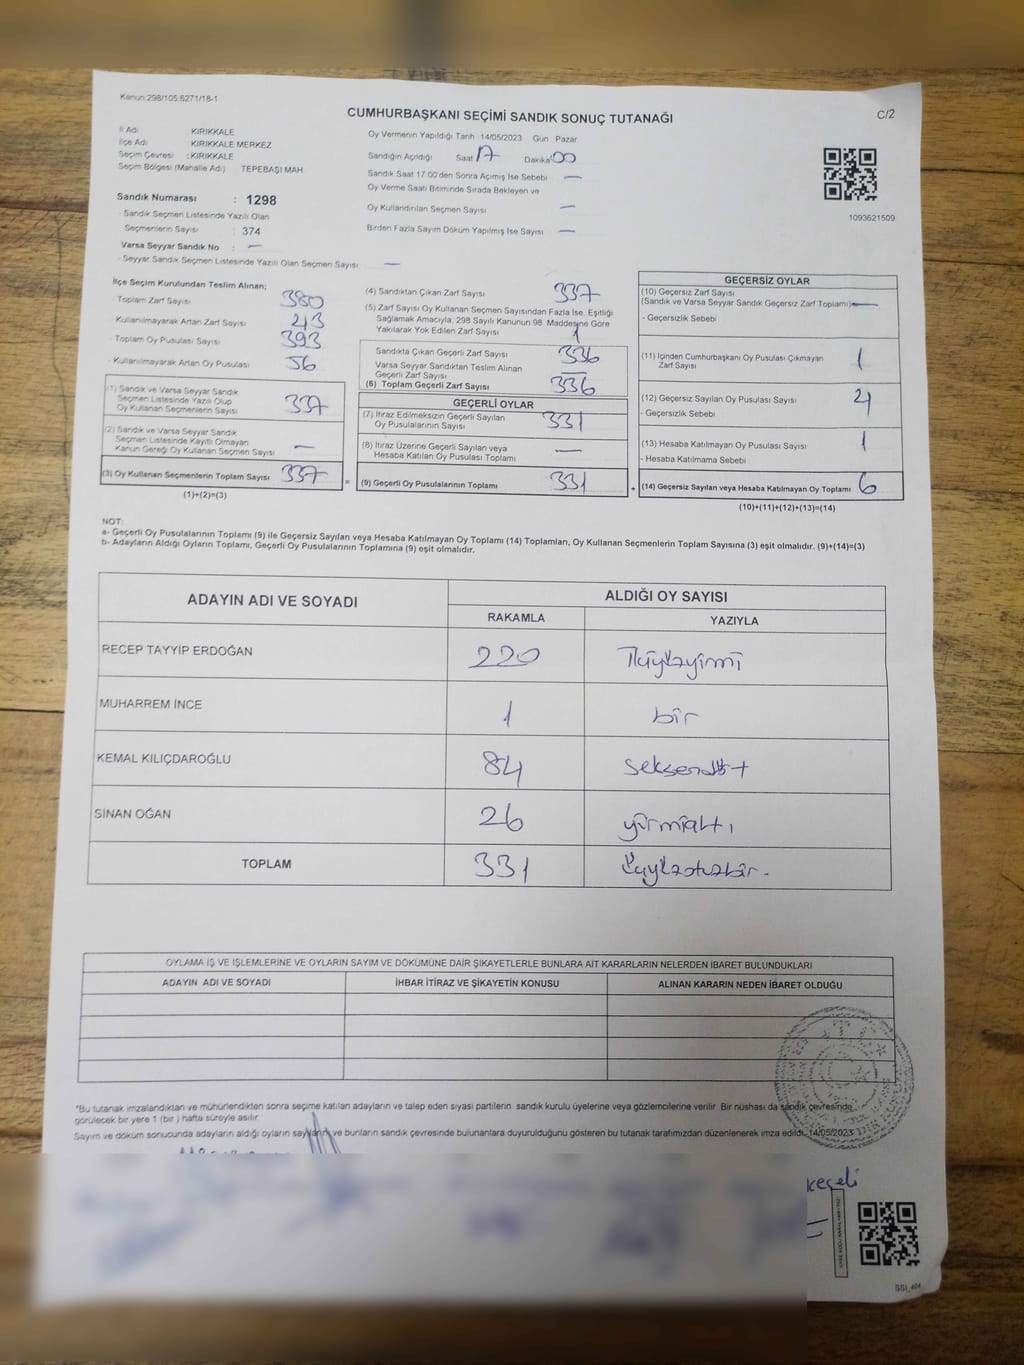 Kanun:298/105;6271/18-1
C/2
CUMHURBAŞKANI SEÇİMİ SANDIK SONUÇ TUTANAĞI
İl Adı KIRIKKALE
İlçe Adı KIRIKKALE MERKEZ
Seçim Çevresi : KIRIKKALE
Seçim Bölgesi (Mahalle Adı) TEPEBAŞI MAH
Sandık Numarası : 1298
- Sandık Seçmen Listesinde Yazılı Olan
Seçmenlerin Sayısı : 374
Varsa Seyyar Sandık No : —
- Seyyar Sandık Seçmen Listesinde Yazılı Olan Seçmen Sayısı : —
Oy Vermenin Yapıldığı Tarih 14/05/2023 Gün Pazar
Sandığın Açıldığı Saat 17 Dakika 00
Sandık Saat 17 00'den Sonra Açımış İse Sebebi —
Oy Verme Saati Bitiminde Sırada Bekleyen ve
Oy Kullandırılan Seçmen Sayısı —
Birden Fazla Sayım Döküm Yapılmış İse Sayısı —
1093621509
İlçe Seçim Kurulundan Teslim Alınan;
- Toplam Zarf Sayısı 380
- Kullanılmayarak Artan Zarf Sayısı 43
- Toplam Oy Pusulası Sayısı 393
- Kullanılmayarak Artan Oy Pusulası 56
(1) Sandık ve Varsa Seyyar Sandık
Seçmen Listesinde Yazılı Olup
Oy Kullanan Seçmenlerin Sayısı 337
(2) Sandık ve Varsa Seyyar Sandık
Seçmen Listesinde Kayıtlı Olmayan
Kanun Gereği Oy Kullanan Seçmen Sayısı —
(3) Oy Kullanan Seçmenlerin Toplam Sayısı 337 =
(1)+(2)=(3)
(4) Sandıktan Çıkan Zarf Sayısı 337
(5) Zarf Sayısı Oy Kullanan Seçmen Sayısından Fazla İse, Eşitliği
Sağlamak Amacıyla, 298 Sayılı Kanunun 98. Maddesine Göre
Yakılarak Yok Edilen Zarf Sayısı 1
Sandıkta Çıkan Geçerli Zarf Sayısı 336
Varsa Seyyar Sandıktan Teslim Alınan
Geçerli Zarf Sayısı —
(6) Toplam Geçerli Zarf Sayısı 336
GEÇERLİ OYLAR
(7) İtiraz Edilmeksizin Geçerli Sayılan
Oy Pusulalarının Sayısı 331
(8) İtiraz Üzerine Geçerli Sayılan veya
Hesaba Katılan Oy Pusulası Toplamı —
(9) Geçerli Oy Pusulalarının Toplamı 331 +
GEÇERSİZ OYLAR
(10) Geçersiz Zarf Sayısı
(Sandık ve Varsa Seyyar Sandık Geçersiz Zarf Toplamı) —
- Geçersizlik Sebebi
(11) İçinden Cumhurbaşkanı Oy Pusulası Çıkmayan
Zarf Sayısı 1
(12) Geçersiz Sayılan Oy Pusulası Sayısı 4
- Geçersizlik Sebebi
(13) Hesaba Katılmayan Oy Pusulası Sayısı 1
- Hesaba Katılmama Sebebi
(14) Geçersiz Sayılan veya Hesaba Katılmayan Oy Toplamı 6
(10)+(11)+(12)+(13)=(14)
NOT:
a- Geçerli Oy Pusulalarının Toplamı (9) ile Geçersiz Sayılan veya Hesaba Katılmayan Oy Toplamı (14) Toplamları, Oy Kullanan Seçmenlerin Toplam Sayısına (3) eşit olmalıdır. (9)+(14)=(3)
b- Adayların Aldığı Oyların Toplamı, Geçerli Oy Pusulalarının Toplamına (9) eşit olmalıdır.
ADAYIN ADI VE SOYADI ALDIĞI OY SAYISI
RAKAMLA YAZIYLA
RECEP TAYYİP ERDOĞAN 220 İkiyüzyirmi
MUHARREM İNCE 1 bir
KEMAL KILIÇDAROĞLU 84 seksendört
SİNAN OĞAN 26 yirmialtı
TOPLAM 331 Üçyüzotuzbir.
OYLAMA İŞ VE İŞLEMLERİNE VE OYLARIN SAYIM VE DÖKÜMÜNE DAİR ŞİKAYETLERLE BUNLARA AİT KARARLARIN NELERDEN İBARET BULUNDUKLARI
ADAYIN ADI VE SOYADI İHBAR İTİRAZ VE ŞİKAYETİN KONUSU ALINAN KARARIN NEDEN İBARET OLDUĞU
*Bu tutanak imzalandıktan ve mühürlendikten sonra seçime katılan adayların ve talep eden siyasi partilerin sandık kurulu üyelerine veya gözlemcilerine verilir. Bir nüshası da sandık çevresinde
görülecek bir yere 1 (bir ) hafta süreyle asılır.
Sayım ve döküm sonucunda adayların aldığı oyların sayılarını ve bunların sandık çevresinde bulunanlara duyurulduğunu gösteren bu tutanak tarafımızdan düzenlenerek imza edildi. 14/05/2023
keçeli
SSI_404